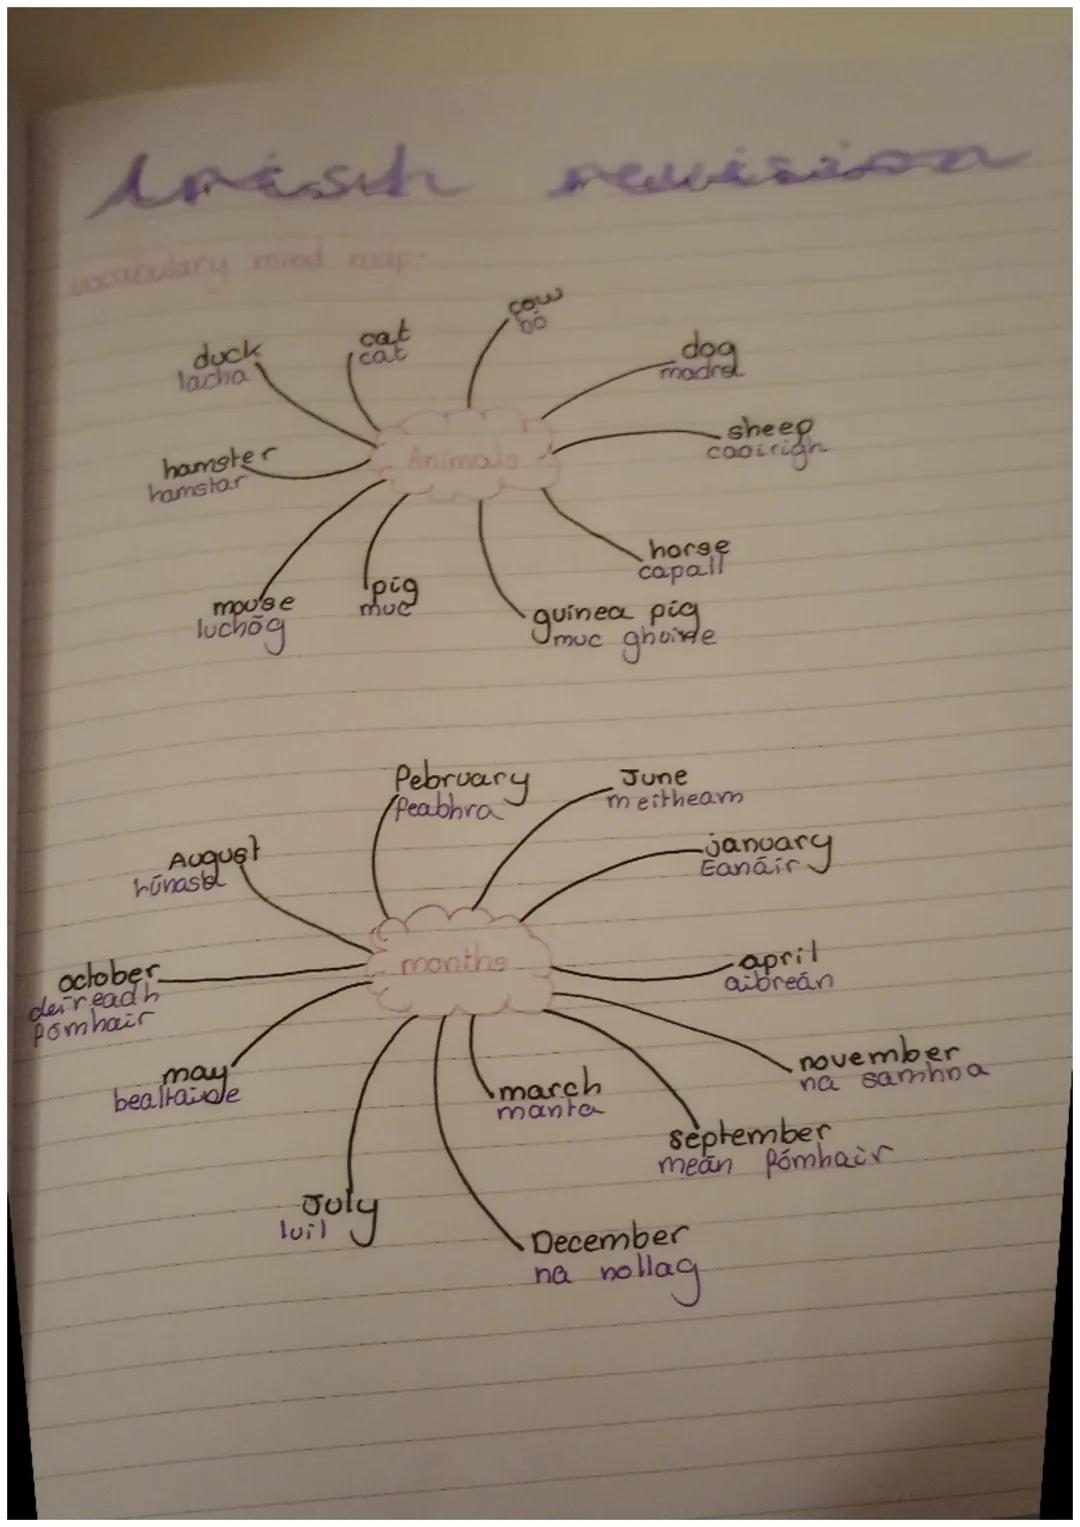 Irish revision
vocabulary mind map-
cow
bó
cat
cat
duck
lacha
dog
madra
sheep
caoirigh
Animals
hamster
hamstar
horse
capall
pig
muc
mouse
luchóg
guinea pig
muc ghuine
February
feabhra
June
meitheam
january
Eanáir
August
lúnasa
months
april
aibreán
october
deireadh
fómhair
november
na samhna
may
bealtaine
march
manta
september
meán fómhair
July
luil
December
na nollag